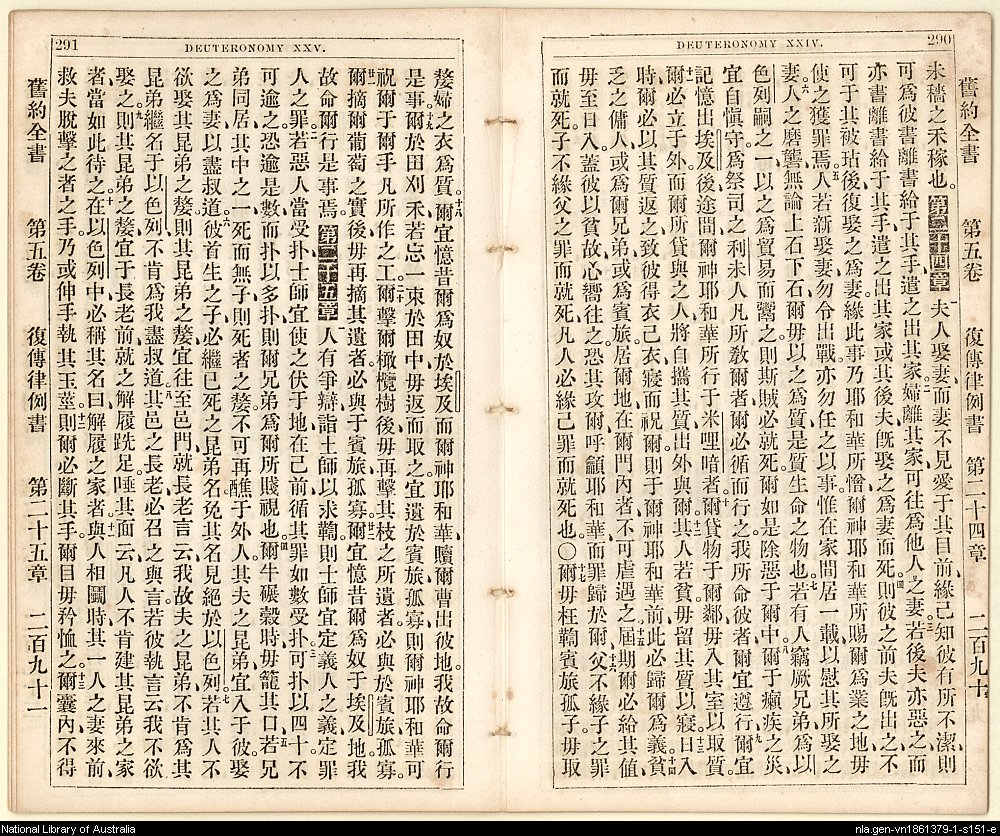 290
DEUTERONOMY XXIV.
舊約全書　第五卷　復傳律例書　第二十四章　二百九十
未穡之禾稼也。第二十四章 一夫人娶妻、二而妻不見愛于其目前、緣己知彼有所不潔、則
可爲彼書離書給于其手、遣之出其家、婦離其家、可往爲他人之妻。三若後夫亦惡之、而
亦書離書給于其手、遣之出其家、或其後夫旣娶之爲妻而死、四則彼之前夫旣出之、不
可于其被玷後、復娶之爲妻、緣此事乃耶和華所憎、爾神耶和華所賜爾爲業之地、毋
使之獲罪焉。五人若新娶妻、勿令出戰、亦勿任之以事、惟在家間居一載、以慰其所娶之
妻。六人之磨礱、無論上石下石、爾毋以之爲質、是質生命之物也。七若有人竊厥兄弟爲以
色列嗣之一、以之爲貿易而鬻之、則斯賊必就死、爾如是除惡于爾中。八爾于癩疾之災、
宜自愼守、爲祭司之利未人、凡所敎爾者、爾必循而行之、我所命彼者、爾宜遵行。九爾宜
記憶出埃及後途間、爾神耶和華所行于米哩暗者。十爾貸物于爾鄰、毋入其室以取質、
十一爾必立于外、而爾所貸與之人、將自攜其質出外與爾。十二其人若貧、毋留其質以寢、十三日入
時、爾必以其質返之、致彼得衣己衣寢而祝爾、則于爾神耶和華前、此必歸爾爲義。十四貧
乏之傭人、或爲爾兄弟、或爲賓旅、居爾地、在爾門內者、不可虐遇之。十五屆期爾必給其值、
毋至日入、蓋彼以貧故、心嚮往之、恐其攻爾呼籲耶和華、而罪歸於爾。十六父不緣子之罪
而就死、子不緣父之罪而就死、凡人必緣己罪而就死也。〇十七爾毋枉鞫賓旅孤子、毋取
291
DEUTERONOMY XXV.
嫠婦之衣爲質。十八爾宜憶昔爾爲奴於埃及、而爾神耶和華、贖爾曹出彼地、我故命爾行
是事。十九爾於田刈禾、若忘一束於田中、毋返而取之、宜遺於賓旅孤寡、則爾神耶和華可
祝爾于爾手凡所作之工。二十爾擊爾橄欖樹後、毋再擊其枝、之所遺者、必與於賓旅孤寡。
廿一爾摘爾葡萄之實後、毋再摘其遺者、必與于賓旅孤寡。廿二爾宜憶昔爾爲奴于埃及地、我
故命爾行是事焉。第二十五章 一人有爭辯、詣士師以求鞫、則士師宜定義人之義、定罪
人之罪。二若惡人當受扑、士師宜使之伏于地、在己前循其罪如數受扑。三可扑以四十、不
可逾之、恐逾是數而扑以多扑、則爾兄弟爲爾所賤視也。四爾牛碾穀時毋籠其口。五若兄
弟同居、其中之一死而無子、則死者之嫠不可再醮于外人、其夫之昆弟宜入于彼、娶
之爲妻、以盡叔道。六彼首生之子、必繼已死之昆弟名、免其名見絕於以色列。七若其人不
欲娶其昆弟之嫠、則其昆弟之嫠宜往至邑門、就長老言云、我故夫之昆弟、不肯爲其
昆弟繼名于以色列、不肯爲我盡叔道。八其邑之長老必召之與言、若彼執言云、我不欲
娶之、九則其昆弟之嫠、宜于長老前就之、解履跣足、唾其面云、凡人不肯建其昆弟之家
者、當如此待之。十在以色列中必稱其名曰解履之家者。十一與人相鬭時、其一人之妻來前、
救夫脫擊之者之手、乃或伸手執其玉莖、十二則爾必斷其手、爾目毋矜恤之。十三爾囊內不得
舊約全書　第五卷　復傳律例書　第二十五章　二百九十一
National Library of Australia
nla.gen-vn1861379-1-s151-e